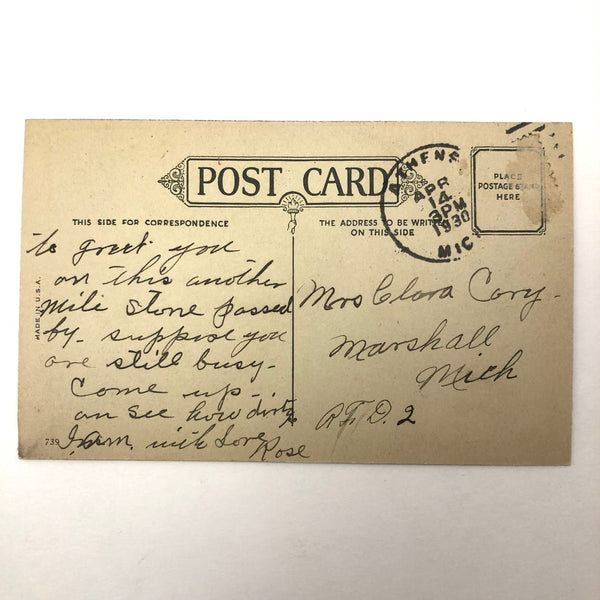 POST CARD
THIS SIDE FOR CORRESPONDENCE
THE ADDRESS TO BE WRITTEN
ON THIS SIDE
PLACE
POSTAGE STAMP
HERE
ATHENS
APR
14
3 PM
1930
MIC
MADE IN U.S.A.
to greet you
on this another
Mile Stone passed
by - suppose you
are still busy -
Come up -
an see how dirty
I am. with Love
Rose
739
Mrs Clara Cory -
Marshall
Mich
R.F.D. 2